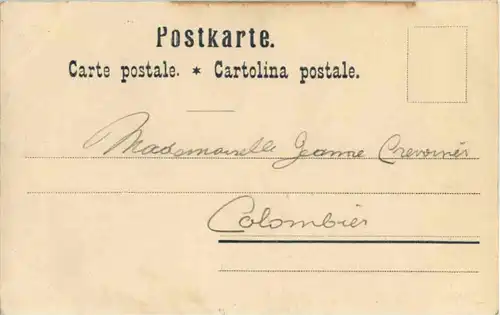 Postkarte.
Carte postale. * Cartolina postale.
Mademoiselle Jeanne
Colombier